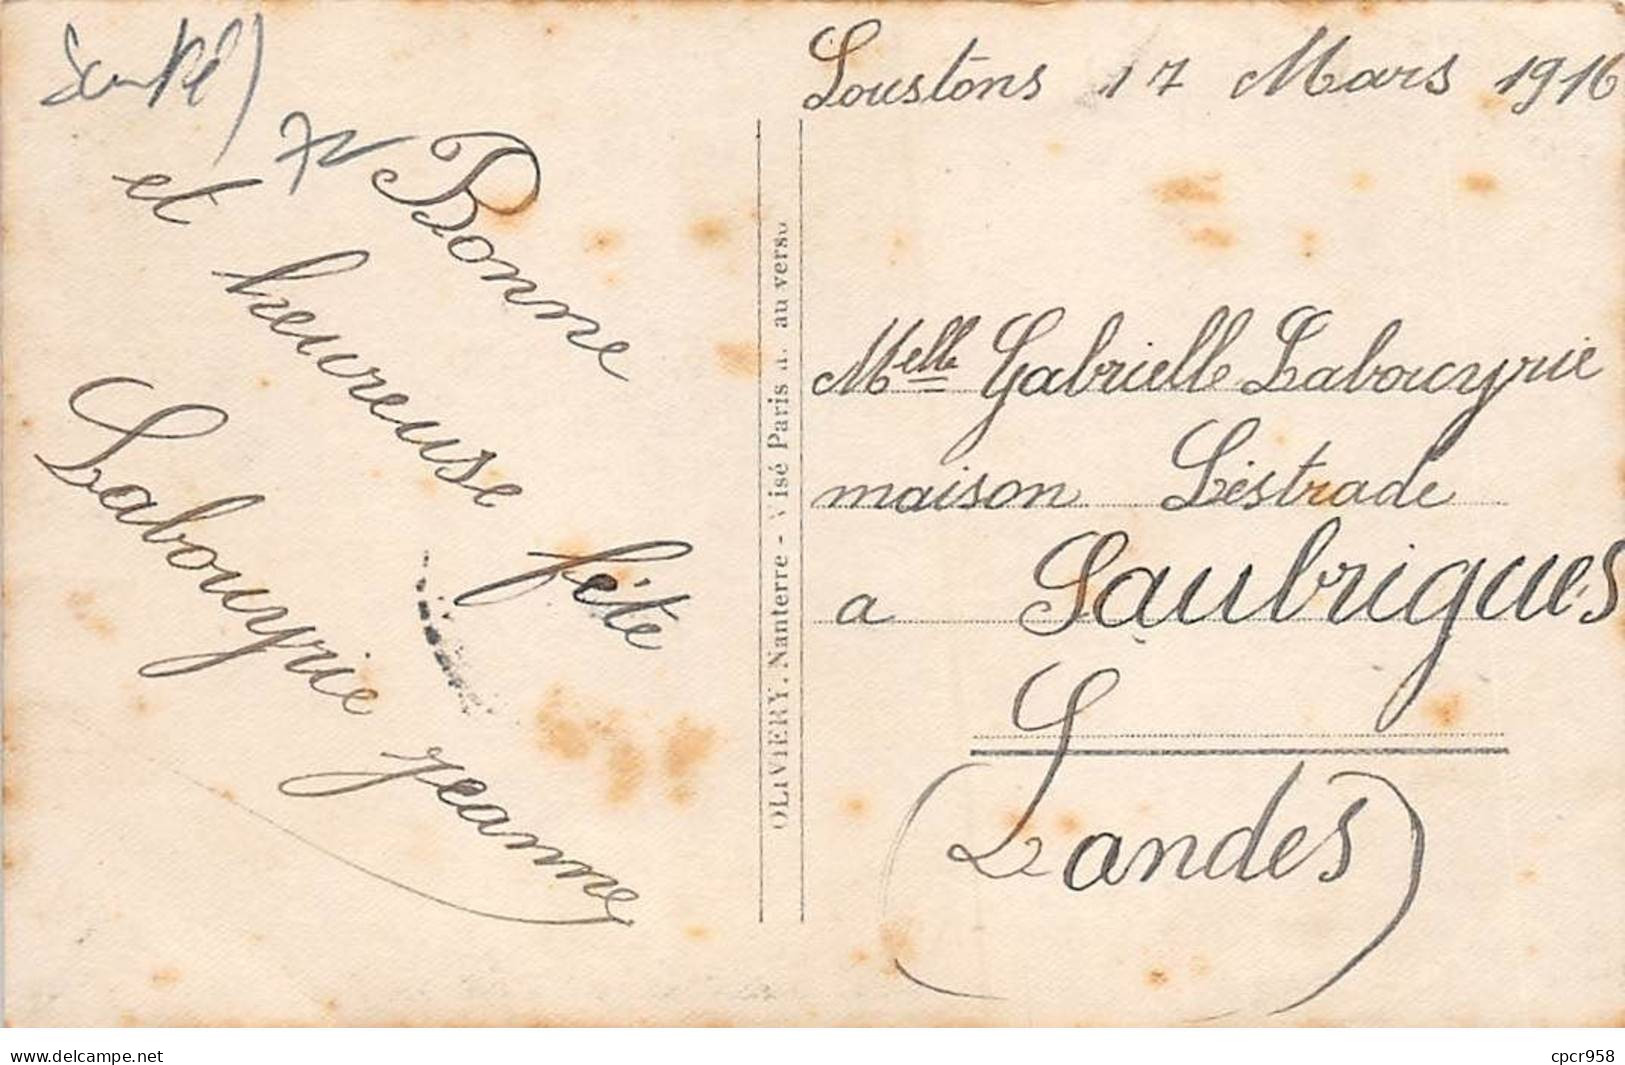 72
Bonne
et heureuse fête
Labouyrie Jeanne
OLIVIERY. Nanterre - Visé Paris n. au verso
Soustons 17 Mars 1916
Melle Gabrielle Labouyrie
maison Léstrade
a Saubrigues
(Landes)
website : www.delcampe.net
cpcr958